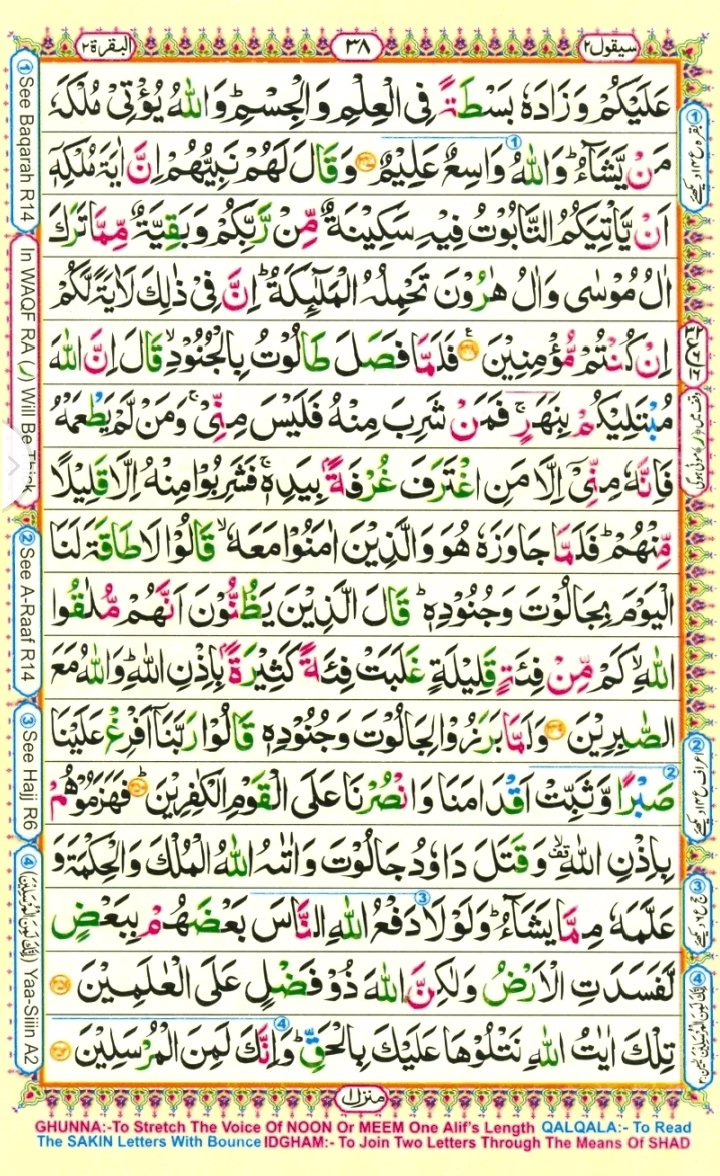 سیقول ۲
۳۸
البقرة ۲
عَلَيْكُمْ وَزَادَهٗ بَسْطَةً فِى الْعِلْمِ وَالْجِسْمِ ؕ وَاللّٰهُ يُؤْتِىْ مُلْكَهٗ
مَنْ يَّشَآءُ ؕ وَاللّٰهُ وَاسِعٌ عَلِيْمٌ ۞ وَقَالَ لَهُمْ نَبِيُّهُمْ اِنَّ اٰيَةَ مُلْكِهٖٓ
اَنْ يَّاْتِيَكُمُ التَّابُوْتُ فِيْهِ سَكِيْنَةٌ مِّنْ رَّبِّكُمْ وَبَقِيَّةٌ مِّمَّا تَرَكَ
اٰلُ مُوْسٰى وَاٰلُ هٰرُوْنَ تَحْمِلُهُ الْمَلٰٓئِكَةُ ؕ اِنَّ فِىْ ذٰلِكَ لَاٰيَةً لَّكُمْ
اِنْ كُنْتُمْ مُّؤْمِنِيْنَ ۞ فَلَمَّا فَصَلَ طَالُوْتُ بِالْجُنُوْدِ ۙ قَالَ اِنَّ اللّٰهَ
مُبْتَلِيْكُمْ بِنَهَرٍ ۚ فَمَنْ شَرِبَ مِنْهُ فَلَيْسَ مِنِّىْ ۚ وَمَنْ لَّمْ يَطْعَمْهُ
فَاِنَّهٗ مِنِّىْٓ اِلَّا مَنِ اغْتَرَفَ غُرْفَةًۢ بِيَدِهٖ ۚ فَشَرِبُوْا مِنْهُ اِلَّا قَلِيْلًا
مِّنْهُمْ ؕ فَلَمَّا جَاوَزَهٗ هُوَ وَالَّذِيْنَ اٰمَنُوْا مَعَهٗ ۙ قَالُوْا لَا طَاقَةَ لَنَا
الْيَوْمَ بِجَالُوْتَ وَجُنُوْدِهٖ ؕ قَالَ الَّذِيْنَ يَظُنُّوْنَ اَنَّهُمْ مُّلٰقُوا
اللّٰهِ ۙ كَمْ مِّنْ فِئَةٍ قَلِيْلَةٍ غَلَبَتْ فِئَةً كَثِيْرَةًۢ بِاِذْنِ اللّٰهِ ؕ وَاللّٰهُ مَعَ
الصّٰبِرِيْنَ ۞ وَلَمَّا بَرَزُوْا لِجَالُوْتَ وَجُنُوْدِهٖ قَالُوْا رَبَّنَآ اَفْرِغْ عَلَيْنَا
صَبْرًا وَّثَبِّتْ اَقْدَامَنَا وَانْصُرْنَا عَلَى الْقَوْمِ الْكٰفِرِيْنَ ۞ فَهَزَمُوْهُمْ
بِاِذْنِ اللّٰهِ ۙ وَقَتَلَ دَاوٗدُ جَالُوْتَ وَاٰتٰىهُ اللّٰهُ الْمُلْكَ وَالْحِكْمَةَ وَ
عَلَّمَهٗ مِمَّا يَشَآءُ ؕ وَلَوْلَا دَفْعُ اللّٰهِ النَّاسَ بَعْضَهُمْ بِبَعْضٍ
لَّفَسَدَتِ الْاَرْضُ وَلٰكِنَّ اللّٰهَ ذُوْ فَضْلٍ عَلَى الْعٰلَمِيْنَ ۞
تِلْكَ اٰيٰتُ اللّٰهِ نَتْلُوْهَا عَلَيْكَ بِالْحَقِّ ؕ وَاِنَّكَ لَمِنَ الْمُرْسَلِيْنَ ۞
منزل ۱
① See Baqarah R14
In WAQF RA (ر) Will Be Thick
② See A-Raaf R14
③ See Hajj R6
④ (اِنَّكَ لَمِنَ الْمُرْسَلِيْنَ) Yaa-Siiin A2
GHUNNA:-To Stretch The Voice Of NOON Or MEEM One Alif's Length QALQALA:- To Read
The SAKIN Letters With Bounce IDGHAM:- To Join Two Letters Through The Means Of SHAD